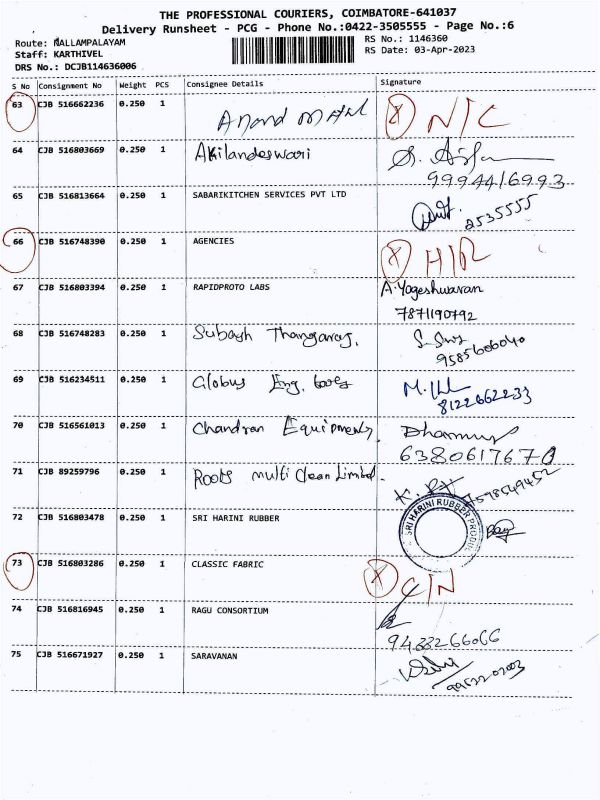 THE PROFESSIONAL COURIERS, COIMBATORE-641037
Delivery Runsheet - PCG - Phone No.:0422-3505555 - Page No.:6
Route: NALLAMPALAYAM
RS No.: 1146360
Staff: KARTHIVEL
RS Date: 03-Apr-2023
DRS No.: DCJB114636006
S No Consignment No Weight PCS Consignee Details Signature
63 CJB 516662236 0.250 1 Anand X N/C
64 CJB 516803669 0.250 1 Akilandeswari
9994416993
65 CJB 516813664 0.250 1 SABARIKITCHEN SERVICES PVT LTD
2535555
66 CJB 516748390 0.250 1 AGENCIES X
67 CJB 516803394 0.250 1 RAPIDPROTO LABS A.Yogeshwaran
7871190792
68 CJB 516748283 0.250 1 Subash Thangaraj.
9585606040
69 CJB 516234511 0.250 1 Globus Eng. tools
8122662233
70 CJB 516561013 0.250 1 Chandran Equipments,
6380617670
71 CJB 89259796 0.250 1 Roots multi Clean Limited.
72 CJB 516803478 0.250 1 SRI HARINI RUBBER SRI HARINI RUBBER
73 CJB 516803286 0.250 1 CLASSIC FABRIC X C/N
74 CJB 516816945 0.250 1 RAGU CONSORTIUM
75 CJB 516671927 0.250 1 SARAVANAN